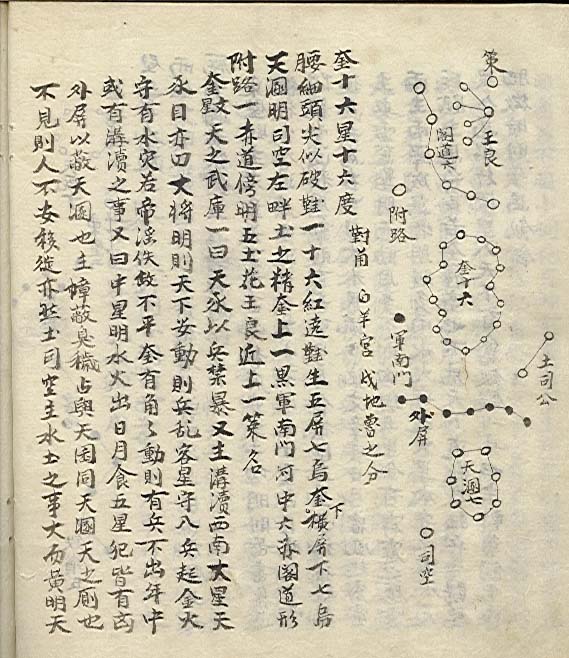 策
王良
閣道六
附路
奎十六
軍南門
土司公
外屏
天溷七
司空
奎十六星十六度 對 白羊宮 戌地魯之分
腰細頭尖似破鞋一十六紅遶鞋生五屏七烏奎下橫屏下七烏
天溷明司空左畔土之精奎上一黑軍南門河中六赤閣道形
附路一赤道傍明五土花王良近上一策名
奎文天之武庫一曰天豕以兵禁暴又主溝瀆西南大星天
豕目亦曰大將明則天下安動則兵乱客星守入兵起金火
守有水灾若帝淫佚政不平奎有角〻動則有兵不出年中
或有溝瀆之事又曰中星明水火出日月食五星犯皆有凶
外屏以蔽天溷也主障蔽臭穢占與天囷同天溷天之厠也
不見則人不安移徙亦然土司空主水土之事大而黃明天